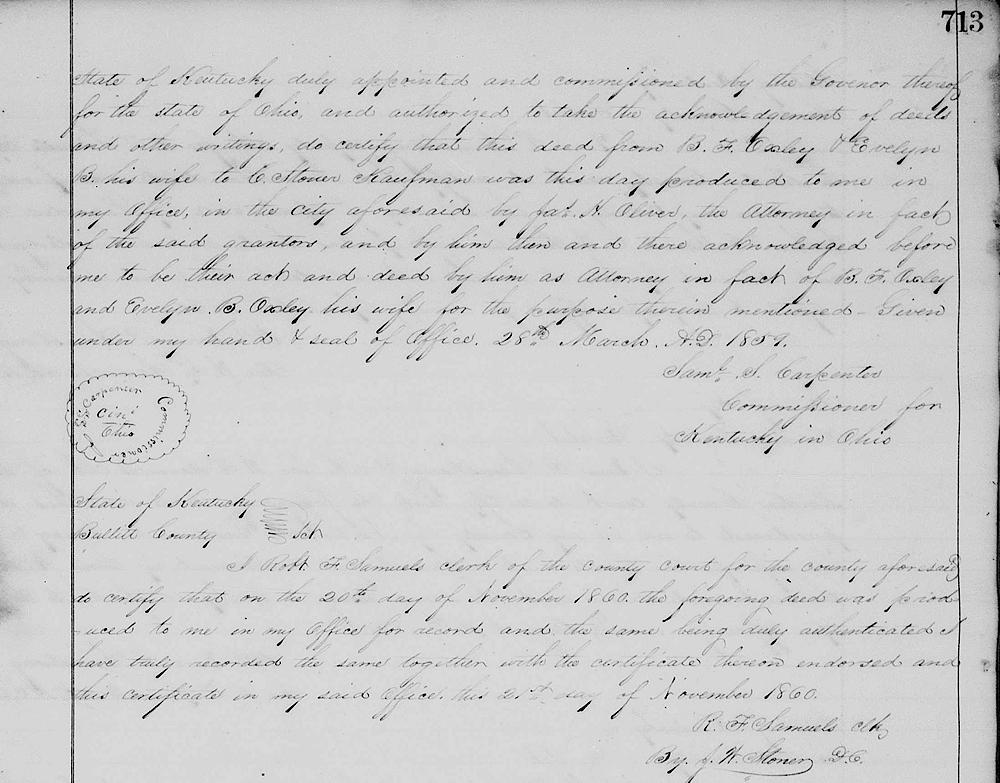 713
State of Kentucky duly appointed and commissioned by the Govenor thereof
for the state of Ohio, and authorized to take the acknowledgement of deeds
and other writings, do certify that this deed from B. F. Oxley & Evelyn
B. his wife to C. Stoner Kaufman was this day produced to me in
my Office, in the city aforesaid by Jas. H. Oliver, the Attorney in fact
of the said grantors, and by him then and there acknowledged before
me to be their act and deed by him as Attorney in fact of B. F. Oxley
and Evelyn B. Oxley his wife for the purpose therein mentioned - Given
under my hand & seal of Office. 28th March. A.D. 1859.
Saml. S. Carpenter
Commissioner for
Kentucky in Ohio
S S Carpenter
Commissioner
Cini
Ohio
State of Kentucky
Bullitt County Sct
I Robt F. Samuels clerk of the county court for the county aforesaid
do certify that on the 20th day of November 1860 the foregoing deed was prod
-uced to me in my Office for record and the same being duly authenticated I
have truly recorded the same together with the certificate thereon endorsed and
this certificate in my said Office. this 21st day of November 1860.
R. F. Samuels Clk
By J. W. Stoner D.C.